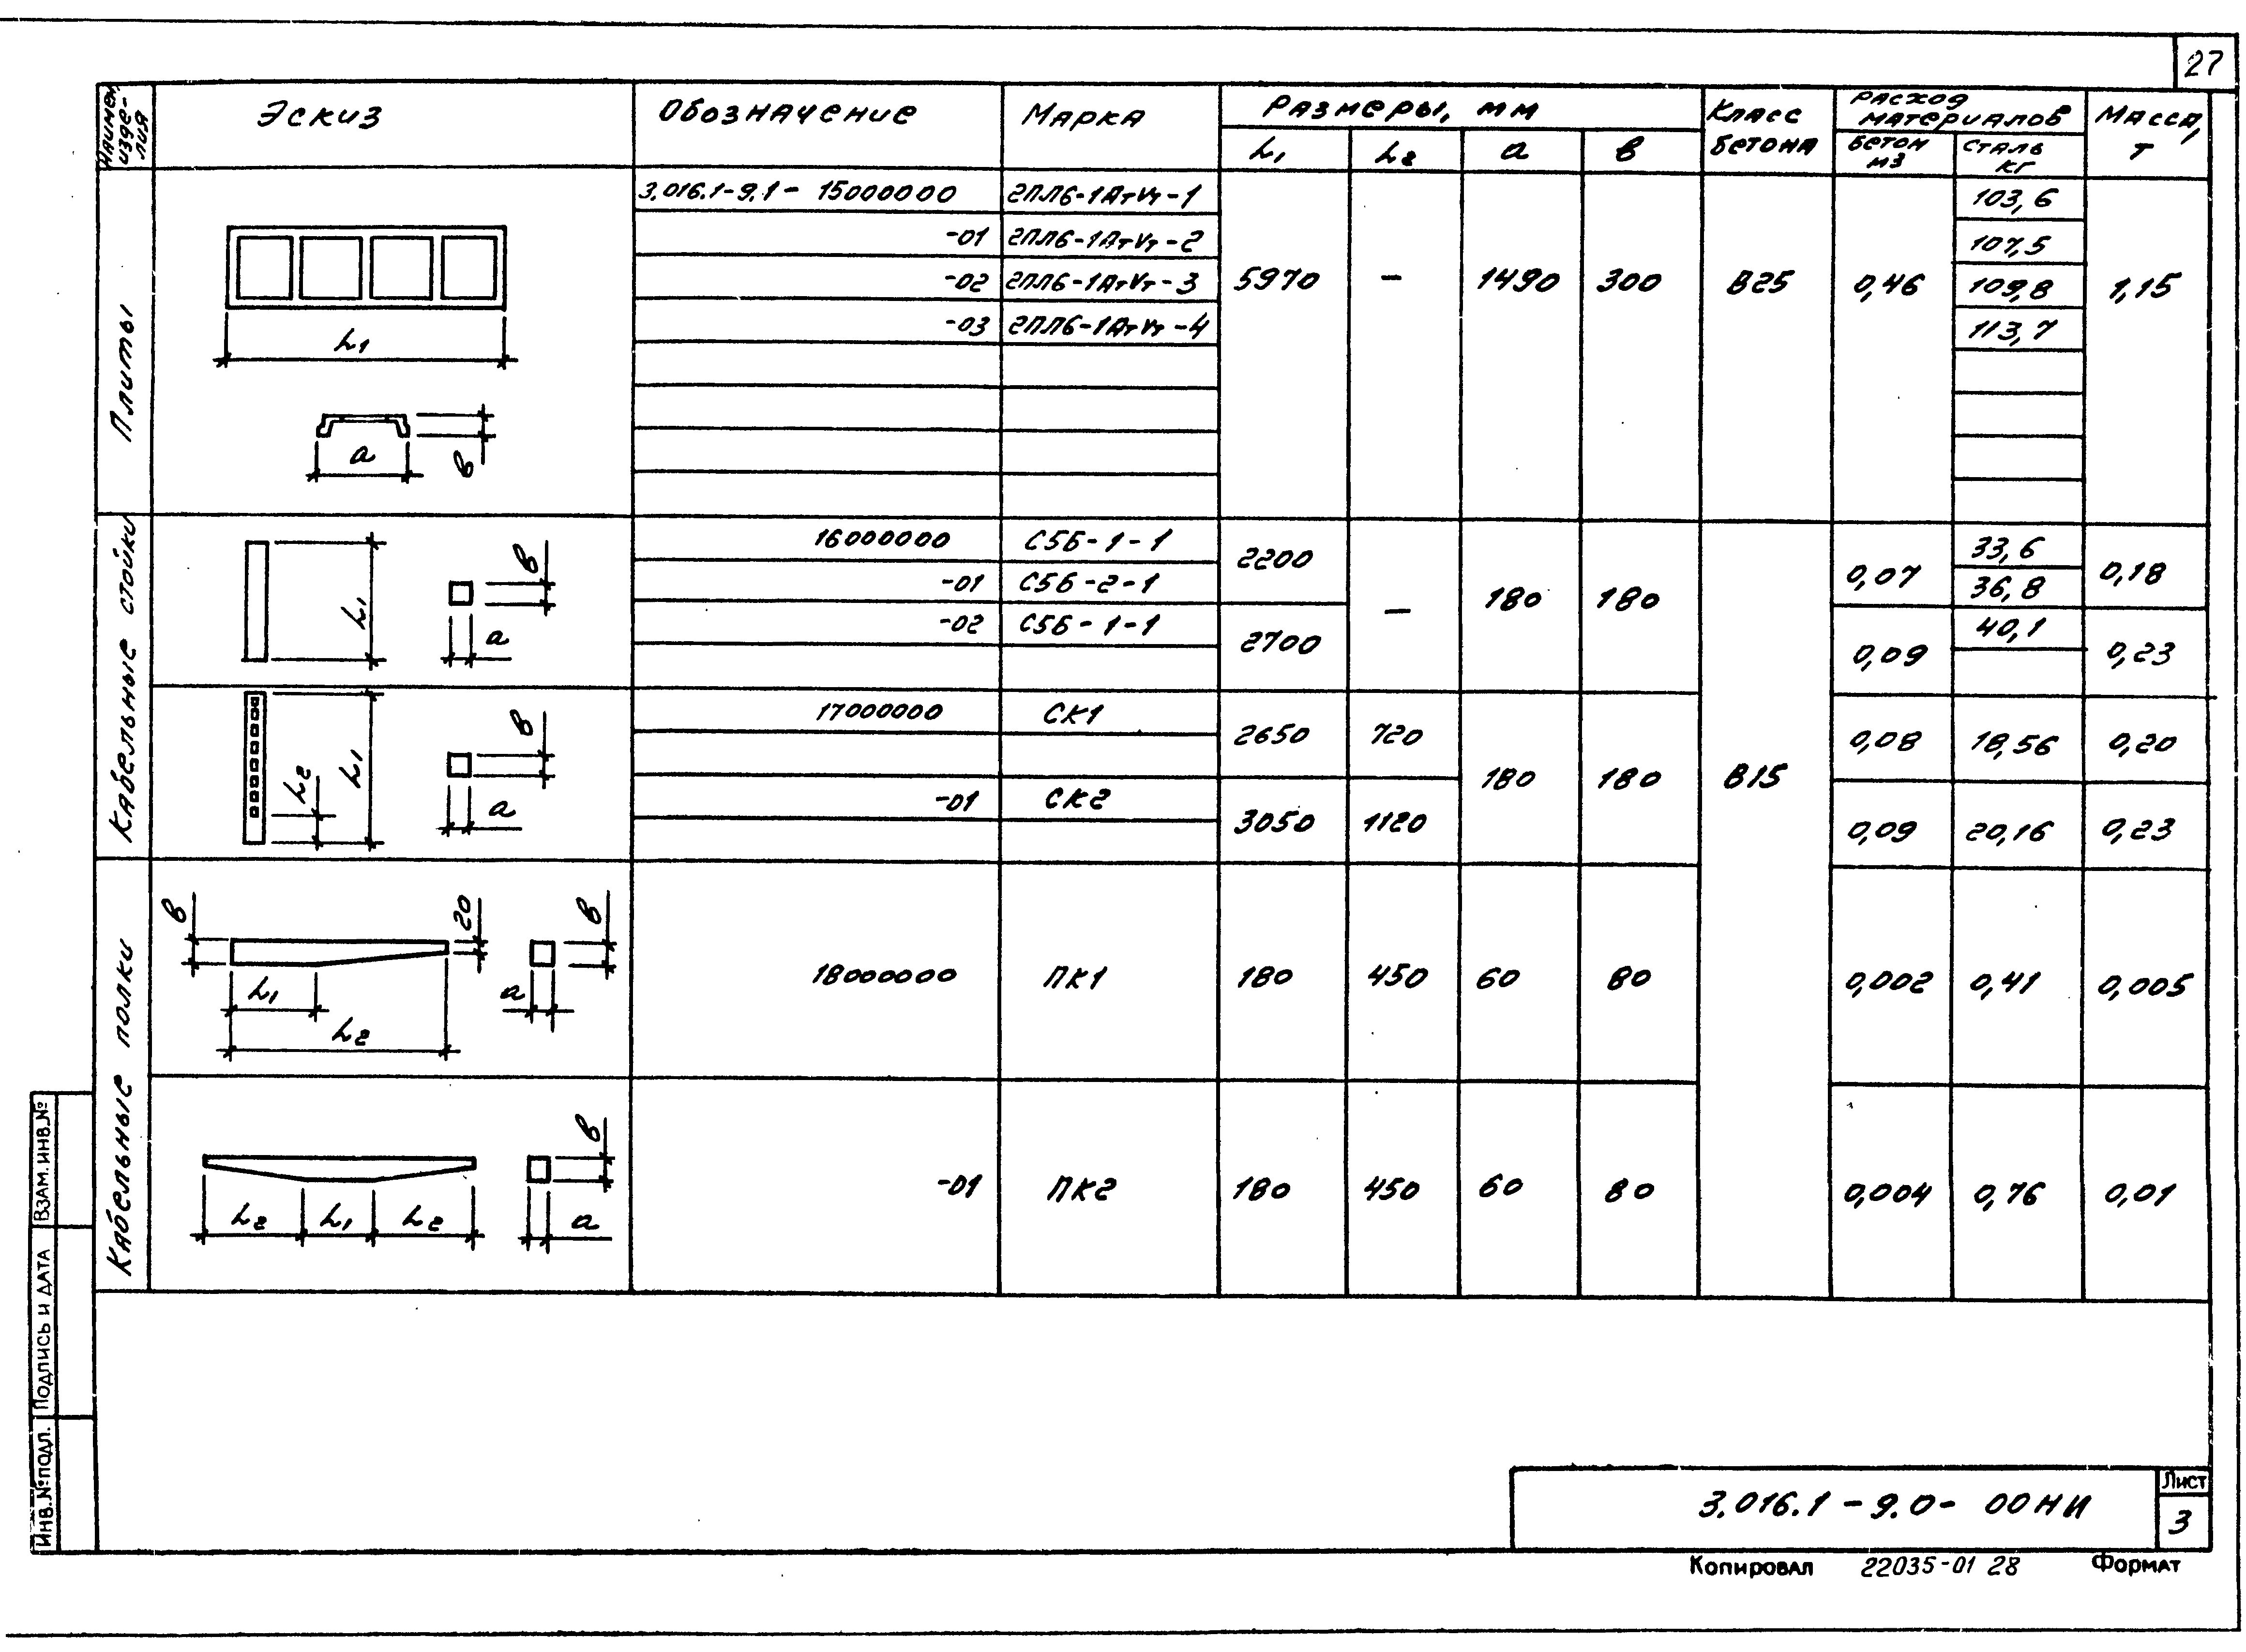 27
Наимен. изде-лия Эскиз Обозначение Марка Размеры, мм Класс бетона Расход материалов Масса, т
L1 L2 а в бетон м3 сталь кг
Плиты
3.016.1-9.1- 15000000 2ПЛ6-1АтVт-1 103,6
-01 2ПЛ6-1АтVт-2 107,5
-02 2ПЛ6-1АтVт-3 5970 - 1490 300 В25 0,46 109,8 1,15
-03 2ПЛ6-1АтVт-4 113,7
L1
а в
Кабельные стойки
16000000 С5Б-1-1 2200 33,6
-01 С5Б-2-1 - 180 180 0,07 36,8 0,18
-02 С5Б-1-1 2700 0,09 40,1 0,23
L1 а в
17000000 СК1 2650 720 0,08 18,56 0,20
180 180 В15
-01 СК2 3050 1120 0,09 20,16 0,23
L2 L1 а в
Кабельные полки
в 20 в
18000000 ПК1 180 450 60 80 0,002 0,41 0,005
L1 а
L2
в
-01 ПК2 180 450 60 80 0,004 0,76 0,01
L2 L1 L2 а
Взам. инв. №
Подпись и дата
Инв. № подл.
3.016.1-9.0-00НИ
Лист
3
Копировал 22035-01 28 Формат